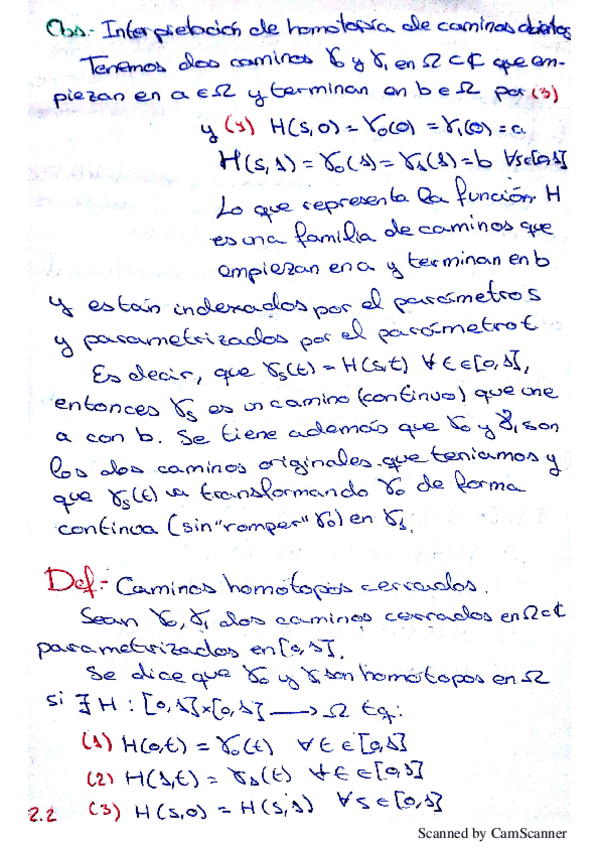 Obs.- Interpretación de homotopía de caminos abiertos
Tenemos dos caminos γ₀ y γ₁ en Ω⊂ℂ que em-
piezan en a∈Ω y terminan en b∈Ω por (3)
y (4) H(s,0) = γ₀(0) = γ₁(0) = a
H(s,1) = γ₀(1) = γ₁(1) = b ∀s∈[0,1]
Lo que representa la función H
es una familia de caminos que
empiezan en a y terminan en b
y están indexados por el parámetro s
y parametrizados por el parámetro t
Es decir, que γₛ(t) = H(s,t) ∀t∈[0,1],
entonces γₛ es un camino (continuo) que une
a con b. Se tiene además que γ₀ y γ₁ son
los dos caminos originales que teníamos y
que γₛ(t) va transformando γ₀ de forma
continua (sin "romper" γ₀) en γ₁.
Def.- Caminos homótopos cerrados.
Sean γ₀, γ₁ dos caminos cerrados en Ω⊂ℂ
parametrizados en [0,1].
Se dice que γ₀ y γ son homótopos en Ω
si ∃ H : [0,1]×[0,1] ⟶ Ω tq:
(1) H(0,t) = γ₀(t) ∀t∈[0,1]
(2) H(1,t) = γ₁(t) ∀t∈[0,1]
(3) H(s,0) = H(s,1) ∀s∈[0,1]
2.2
Scanned by CamScanner